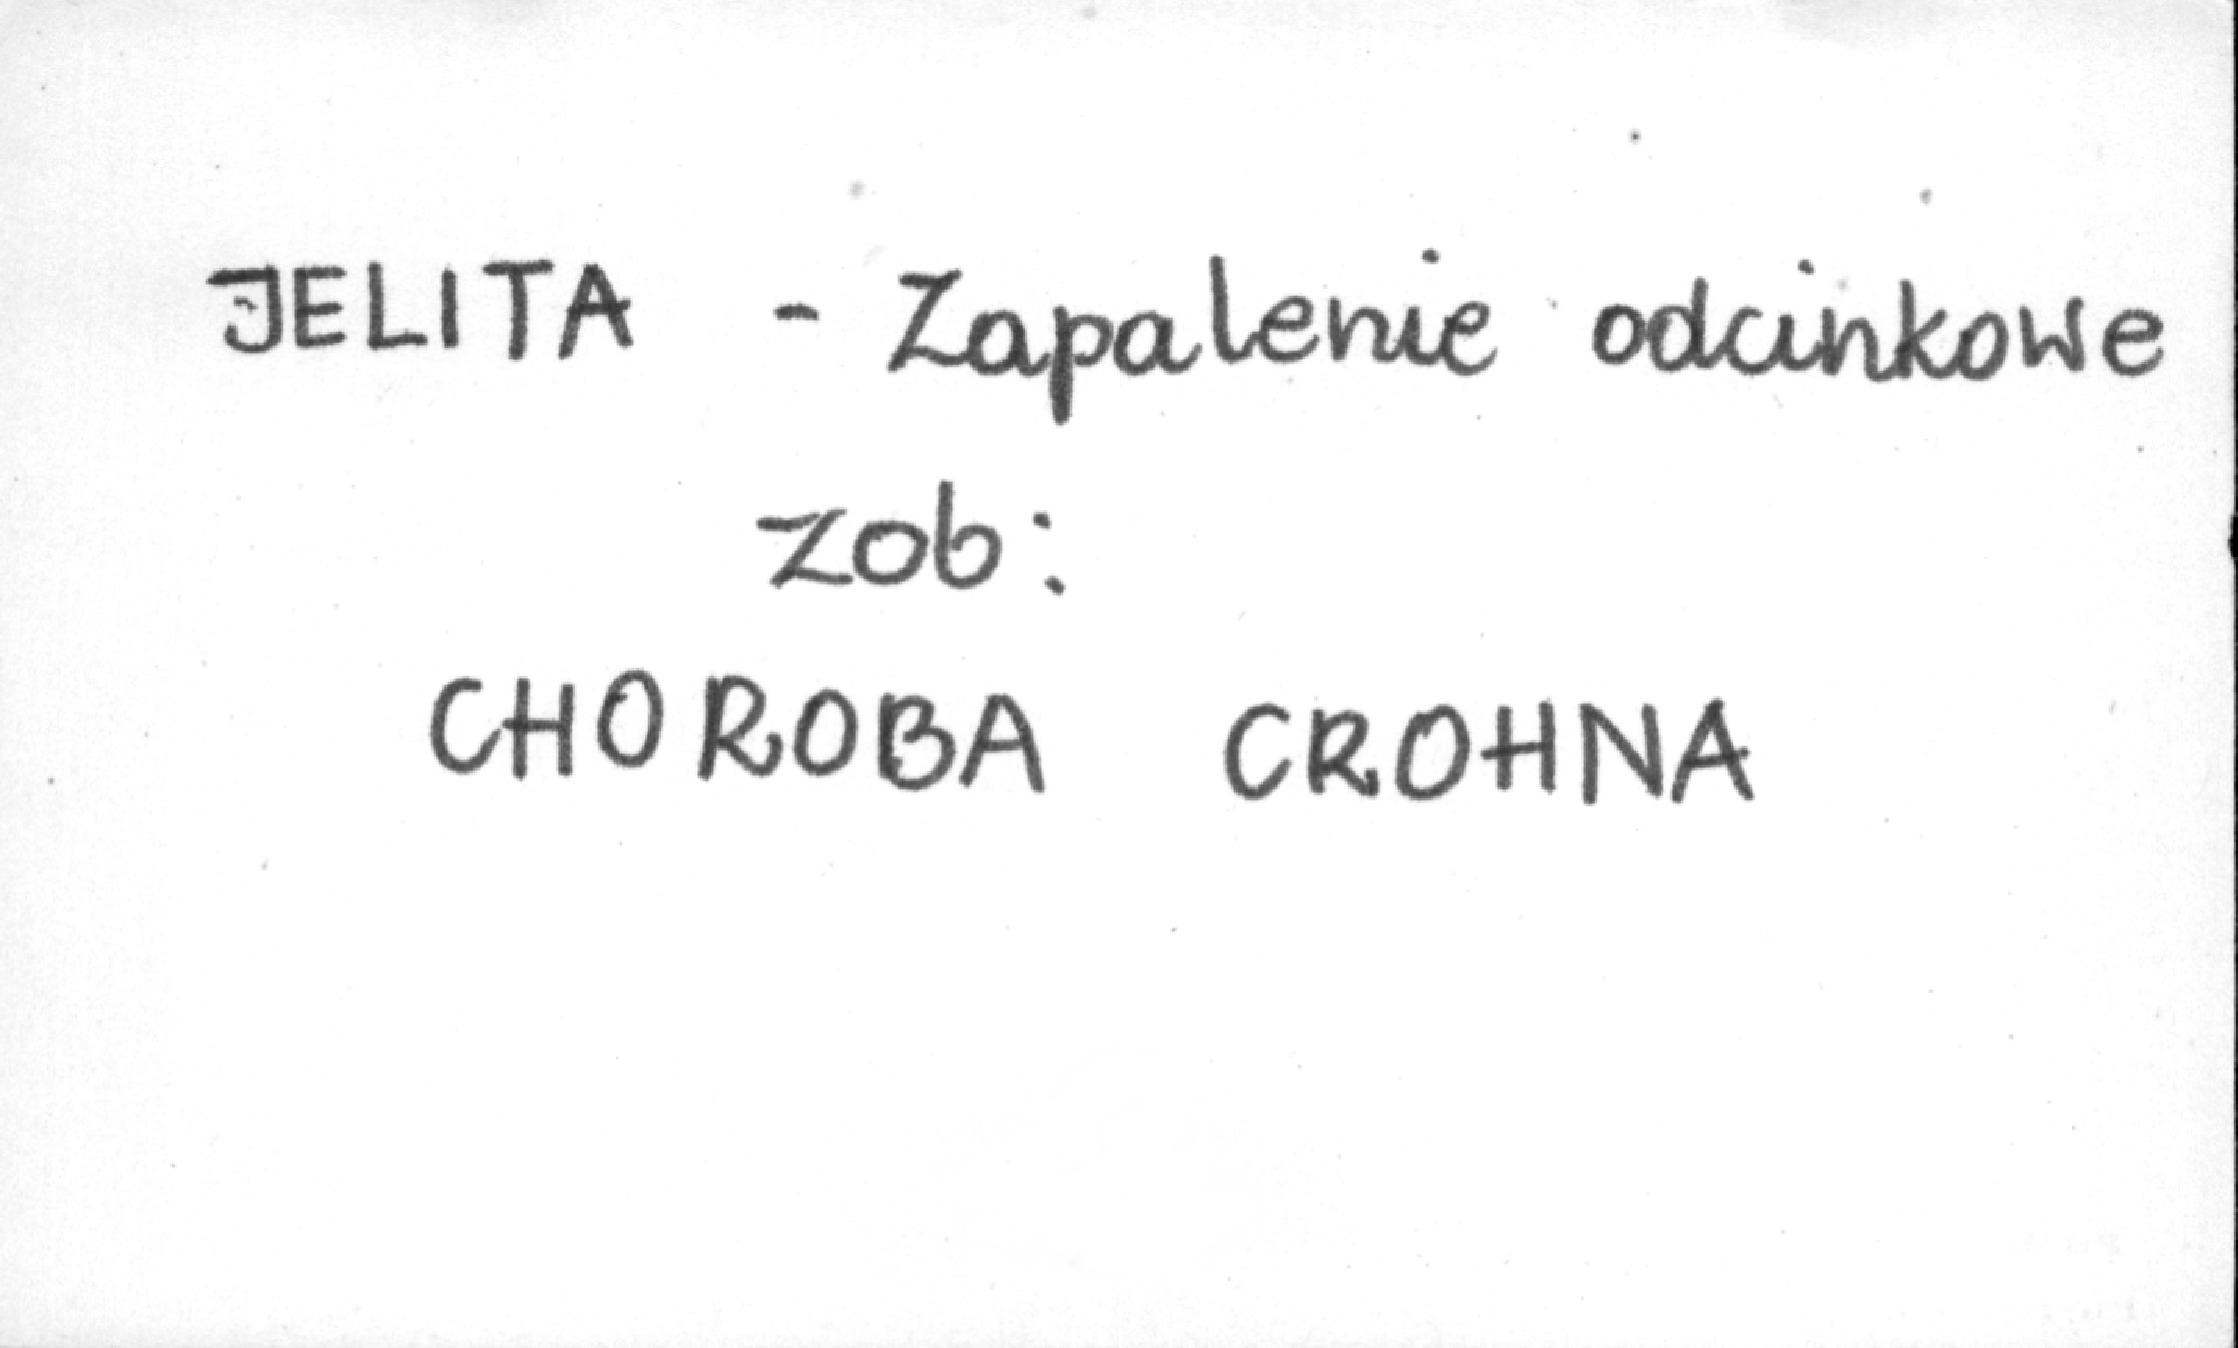 JELITA - Zapalenie odcinkowe
zob:
CHOROBA CROHNA